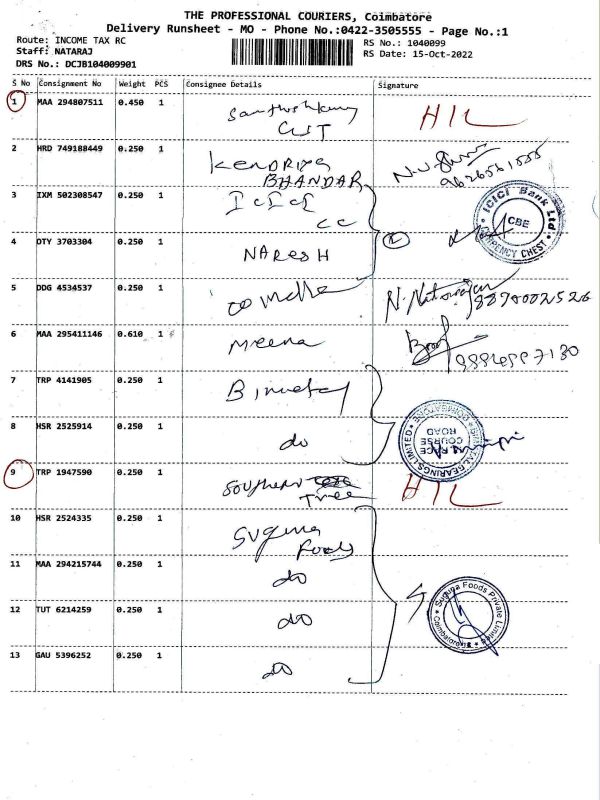 THE PROFESSIONAL COURIERS, Coimbatore
Delivery Runsheet - MO - Phone No.:0422-3505555 - Page No.:1
Route: INCOME TAX RC
RS No.: 1040099
Staff: NATARAJ
RS Date: 15-Oct-2022
DRS No.: DCJB104009901
S No Consignment No Weight PCS Consignee Details Signature
1 MAA 294807511 0.450 1 HIL
2 HRD 749188449 0.250 1 KENDRIYA
BHANDAR
3 IXM 502308547 0.250 1 ICICI
CC
ICICI Bank Ltd
CBE
CURRENCY CHEST
4 DTY 3703304 0.250 1 NARESH
5 DDG 4534537 0.250 1 N. Natarajan
8870002526
6 MAA 295411146 0.610 1 Meena
7 TRP 4141905 0.250 1
8 HSR 2525914 0.250 1 do
RACE
COURSE
ROAD
9 TRP 1947590 0.250 1 Southern
Tree HIL
10 HSR 2524335 0.250 1 Suguna
Foods
11 MAA 294215744 0.250 1 do
12 TUT 6214259 0.250 1 do
Suguna Foods Private Limited
Coimbatore
13 GAU 5396252 0.250 1 do